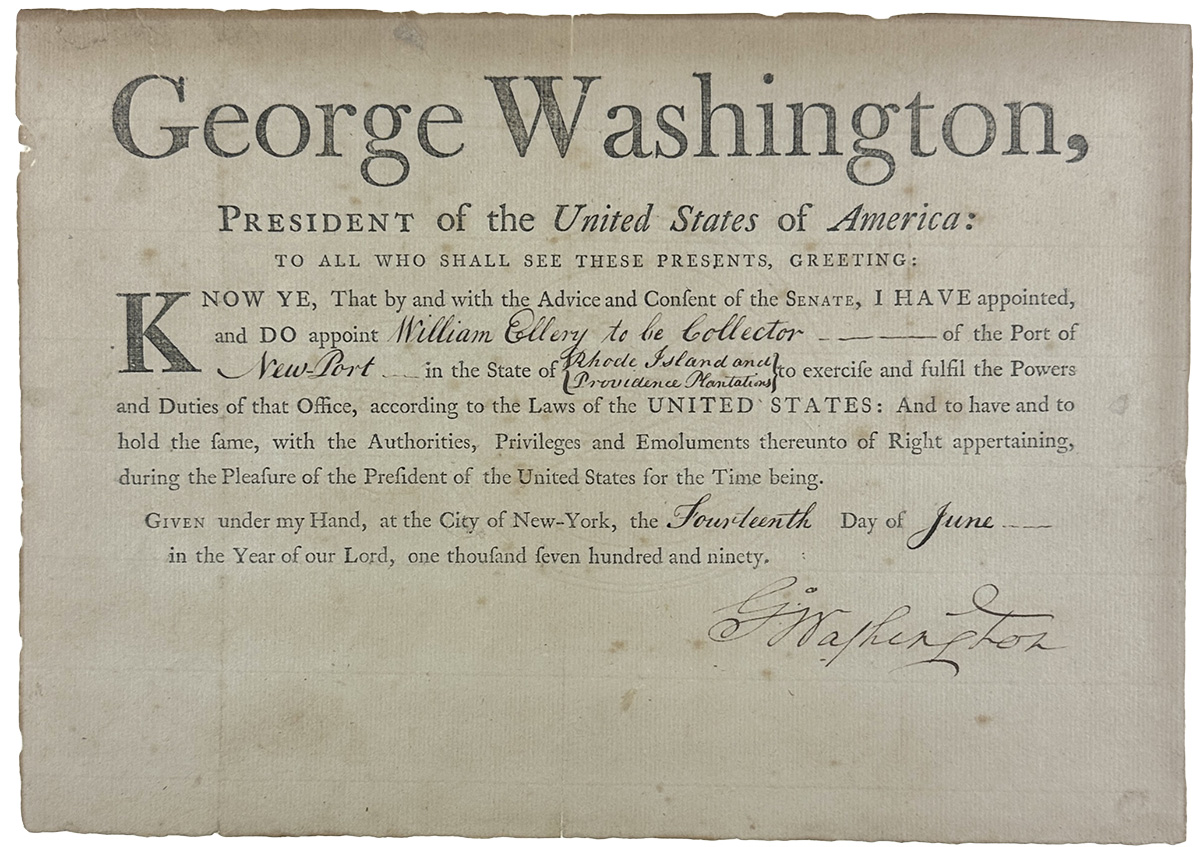 George Washington,
PRESIDENT of the United States of America:
TO ALL WHO SHALL SEE THESE PRESENTS, GREETING:
KNOW YE, That by and with the Advice and Conſent of the SENATE, I HAVE appointed,
and DO appoint William Ellery to be Collector — — — of the Port of
New-Port — in the State of {Rhode Island and Providence Plantations} to exerciſe and fulfil the Powers
and Duties of that Office, according to the Laws of the UNITED STATES: And to have and to
hold the ſame, with the Authorities, Privileges and Emoluments thereunto of Right appertaining,
during the Pleaſure of the Preſident of the United States for the Time being.
GIVEN under my Hand, at the City of New-York, the Fourteenth Day of June —
in the Year of our Lord, one thouſand ſeven hundred and ninety.
Go: Waſhington